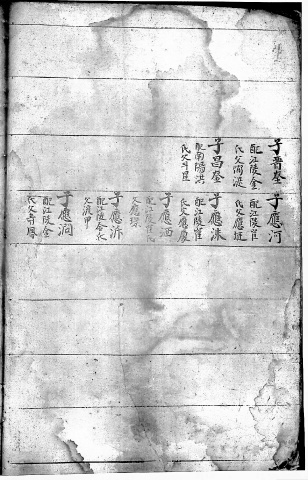 子晋奎
配江陵金
氏父
子昌奎
配南陽洪
氏父斗星
子應河
配江陵崔
氏父應
子應洙
配江陵崔
氏父應慶
子應洒
配江陵崔氏
父應
子應泝
配江陵金氏
父洗甲
子應泂
配江陵金
氏父壽鳳